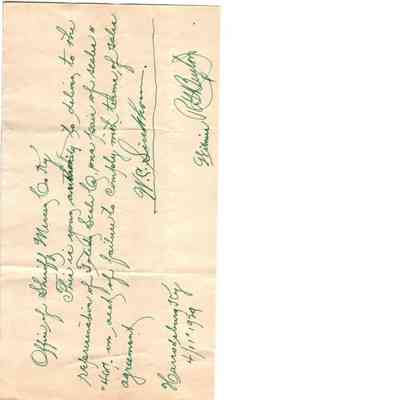 Office of Sheriff Mercer Co Ky.
This is your authority to deliver to the
representative of Toledo Scale Co, one pair of scales #
"401. on acct of failure to comply with terms of sales
agreement
W.C. Linkhorn.
Harrodsburg Ky
4/11" 1929
Witness